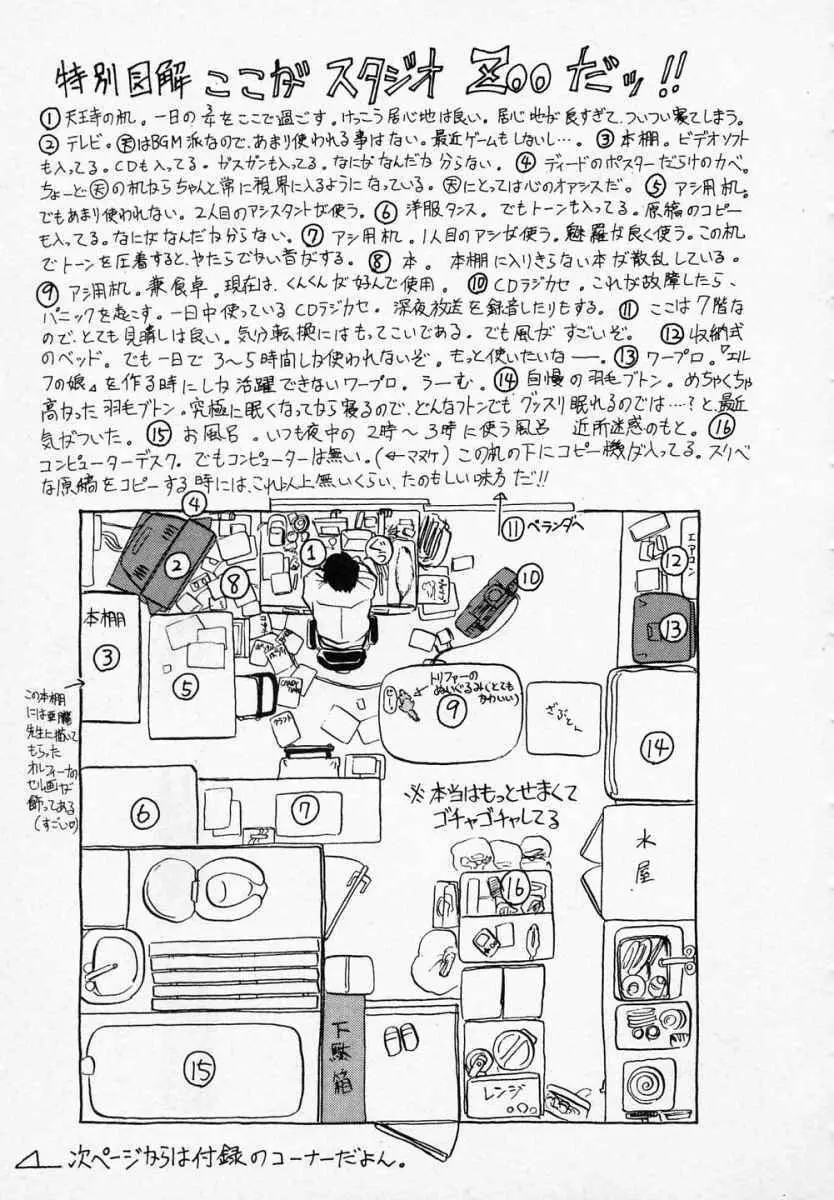 特別図解 ここが スタジオ Zoo だッ!!
①天王寺の机。一日の殆をここで過ごす。けっこう居心地は良い。居心地が良すぎて、ついつい寝てしまう。
②テレビ。㊝はBGM派なので、あまり使われる事はない。最近ゲームもしないし…。 ③本棚。ビデオソフト
も入ってる。CDも入ってる。ガスガンも入ってる。なにがなんだか分らない。 ④ディードのポスターだらけのカベ。
ちょーど㊝の机からちゃんと常に視界に入るようになっている。㊝にとっては心のオアシスだ。 ⑤アシ用机。
でもあまり使われない。2人目のアシスタントが使う。⑥洋服タンス。でもトーンも入ってる。原稿のコピー
も入ってる。なにがなんだか分らない。⑦アシ用机。1人目のアシが使う。魅羅が良く使う。この机
でトーンを圧着すると、やたらでかい音がする。 ⑧本。本棚に入りきらない本が散乱している。
⑨アシ用机。兼食卓。現在は、くんくんが好んで使用。 ⑩CDラジカセ。これが故障したら、
パニックを起こす。一日中使っているCDラジカセ。深夜放送を録音したりもする。⑪ここは7階な
ので、とても見晴しは良い。気分転換にはもってこいである。でも風がすごいぞ。 ⑫収納式
のベッド。でも一日で3〜5時間しか使われないぞ。もっと使いたいなー。⑬ワープロ。『エル
フの娘』を作る時にしか活躍できないワープロ。うーむ。⑭自慢の羽毛ブトン。めちゃくちゃ
高かった羽毛ブトン。究極に眠くなってから寝るので、どんなフトンでもグッスリ眠れるのでは…?と、最近
気がついた。⑮お風呂。いつも夜中の2時〜3時に使う風呂 近所迷惑のもと。⑯
コンピューターデスク。でもコンピューターは無い。(←マヌケ)この机の下にコピー機が入ってる。スリベ
な原稿をコピーする時には、これ以上無いくらい、たのもしい味方だ!!
④
⑪ベランダへ
①
②
⑧
⑩
⑫
エアコン
⑬
本棚
③
⑤
トリファーの
ぬいぐるみ(とても
かわいい)
⑨
ざぶとん
⑭
この本棚
には亜麗
先生に描いて
もらった
オルフィーナの
セル画が
飾ってある
(すごい♡)
⑥
⑦
※本当はもっとせまくて
ゴチャゴチャしてる
水屋
⑯
下駄箱
⑮
レンジ
次ページからは付録のコーナーだよん。